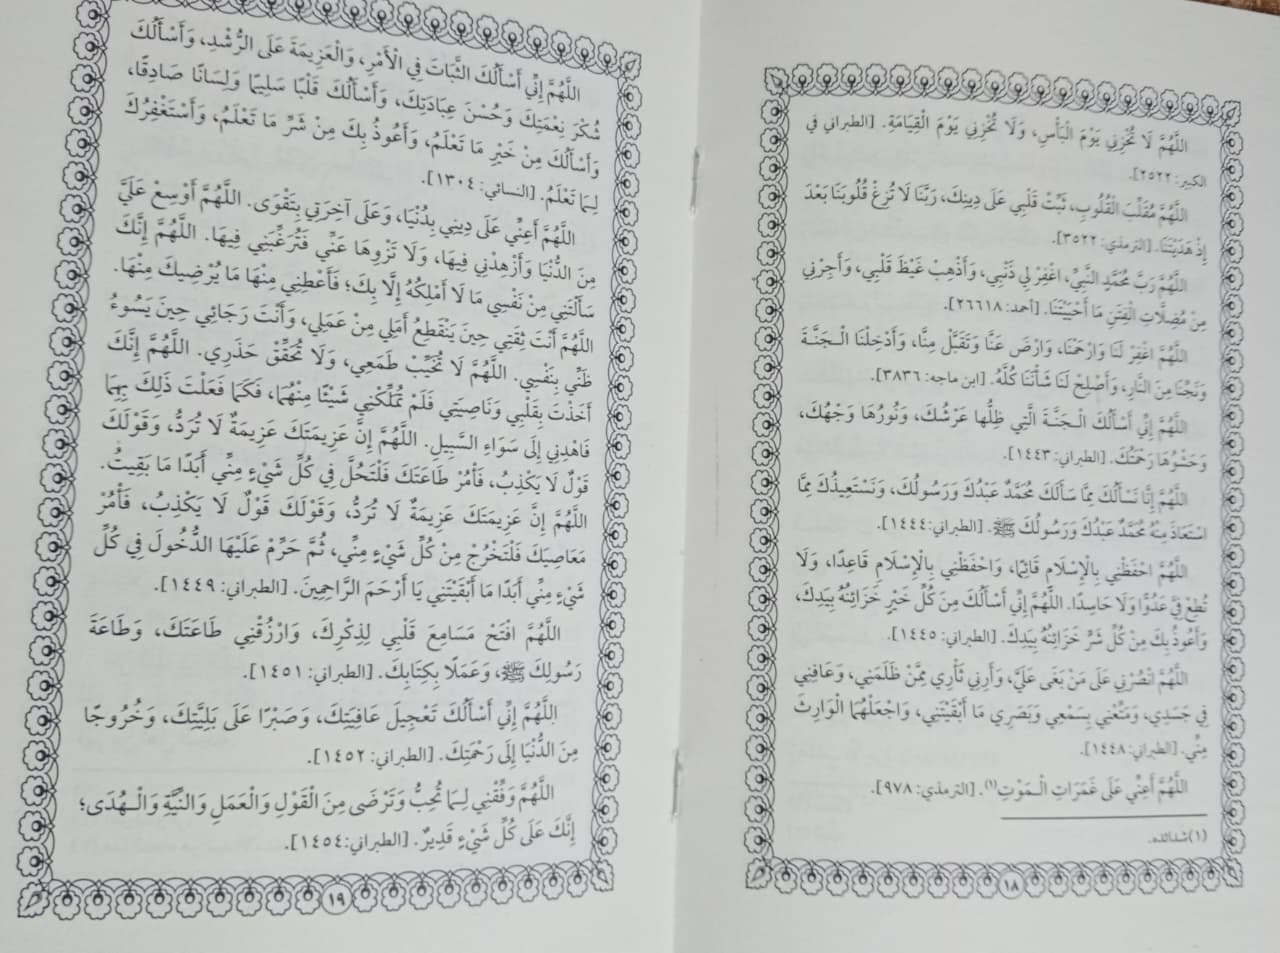 اللَّهُمَّ لَا تُخْزِنِي يَوْمَ الْبَأْسِ، وَلَا تُخْزِنِي يَوْمَ الْقِيَامَةِ. [الطبراني في
الكبير: ٢٥٢٢].
اللَّهُمَّ مُقَلِّبَ الْقُلُوبِ، ثَبِّتْ قَلْبِي عَلَى دِينِكَ، رَبَّنَا لَا تُزِغْ قُلُوبَنَا بَعْدَ
إِذْ هَدَيْتَنَا. [الترمذي: ٣٥٢٢].
اللَّهُمَّ رَبَّ مُحَمَّدٍ النَّبِيِّ، اغْفِرْ لِي ذَنْبِي، وَأَذْهِبْ غَيْظَ قَلْبِي، وَأَجِرْنِي
مِنْ مُضِلَّاتِ الْفِتَنِ مَا أَحْيَيْتَنَا. [أحمد: ٢٦٦١٨].
اللَّهُمَّ اغْفِرْ لَنَا وَارْحَمْنَا، وَارْضَ عَنَّا وَتَقَبَّلْ مِنَّا، وَأَدْخِلْنَا الْـجَنَّةَ
وَنَجِّنَا مِنَ النَّارِ، وَأَصْلِحْ لَنَا شَأْنَنَا كُلَّهُ. [ابن ماجه: ٣٨٣٦].
اللَّهُمَّ إِنِّي أَسْأَلُكَ الْـجَنَّةَ الَّتِي ظِلُّهَا عَرْشُكَ، وَنُورُهَا وَجْهُكَ،
وَحَشْوُهَا رَحْمَتُكَ. [الطبراني: ١٤٤٣].
اللَّهُمَّ إِنَّا نَسْأَلُكَ مِمَّا سَأَلَكَ مُحَمَّدٌ عَبْدُكَ وَرَسُولُكَ، وَنَسْتَعِيذُكَ مِمَّا
اسْتَعَاذَ مِنْهُ مُحَمَّدٌ عَبْدُكَ وَرَسُولُكَ ﷺ. [الطبراني: ١٤٤٤].
اللَّهُمَّ احْفَظْنِي بِالْإِسْلَامِ قَائِمًا، وَاحْفَظْنِي بِالْإِسْلَامِ قَاعِدًا، وَلَا
تُطِعْ فِيَّ عَدُوًّا وَلَا حَاسِدًا. اللَّهُمَّ إِنِّي أَسْأَلُكَ مِنْ كُلِّ خَيْرٍ خَزَائِنُهُ بِيَدِكَ،
وَأَعُوذُ بِكَ مِنْ كُلِّ شَرٍّ خَزَائِنُهُ بِيَدِكَ. [الطبراني: ١٤٤٥].
اللَّهُمَّ انْصُرْنِي عَلَى مَنْ بَغَى عَلَيَّ، وَأَرِنِي ثَأْرِي مِمَّنْ ظَلَمَنِي، وَعَافِنِي
فِي جَسَدِي، وَمَتِّعْنِي بِسَمْعِي وَبَصَرِي مَا أَبْقَيْتَنِي، وَاجْعَلْهُمَا الْوَارِثَ
مِنِّي. [الطبراني: ١٤٤٨].
اللَّهُمَّ أَعِنِّي عَلَى غَمَرَاتِ الْـمَوْتِ(١). [الترمذي: ٩٧٨].
(١) شدائده.
١٨
اللَّهُمَّ إِنِّي أَسْأَلُكَ الثَّبَاتَ فِي الْأَمْرِ، وَالْعَزِيمَةَ عَلَى الرُّشْدِ، وَأَسْأَلُكَ
شُكْرَ نِعْمَتِكَ وَحُسْنَ عِبَادَتِكَ، وَأَسْأَلُكَ قَلْبًا سَلِيمًا وَلِسَانًا صَادِقًا،
وَأَسْأَلُكَ مِنْ خَيْرِ مَا تَعْلَمُ، وَأَعُوذُ بِكَ مِنْ شَرِّ مَا تَعْلَمُ، وَأَسْتَغْفِرُكَ
لِمَا تَعْلَمُ. [النسائي: ١٣٠٤].
اللَّهُمَّ أَعِنِّي عَلَى دِينِي بِدُنْيَا، وَعَلَى آخِرَتِي بِتَقْوَى. اللَّهُمَّ أَوْسِعْ عَلَيَّ
مِنَ الدُّنْيَا وَأَزْهِدْنِي فِيهَا، وَلَا تَزْوِهَا عَنِّي فَتُرَغِّبَنِي فِيهَا. اللَّهُمَّ إِنَّكَ
سَأَلْتَنِي مِنْ نَفْسِي مَا لَا أَمْلِكُهُ إِلَّا بِكَ؛ فَأَعْطِنِي مِنْهَا مَا يُرْضِيكَ مِنْهَا.
اللَّهُمَّ أَنْتَ ثِقَتِي حِينَ يَنْقَطِعُ أَمَلِي مِنْ عَمَلِي، وَأَنْتَ رَجَائِي حِينَ يَسُوءُ
ظَنِّي بِنَفْسِي. اللَّهُمَّ لَا تُخَيِّبْ طَمَعِي، وَلَا تُحَقِّقْ حَذَرِي. اللَّهُمَّ إِنَّكَ
أَخَذْتَ بِقَلْبِي وَنَاصِيَتِي فَلَمْ تُمَلِّكْنِي شَيْئًا مِنْهُمَا، فَكَمَا فَعَلْتَ ذَلِكَ بِهِمَا
فَاهْدِنِي إِلَى سَوَاءِ السَّبِيلِ. اللَّهُمَّ إِنَّ عَزِيمَتَكَ عَزِيمَةٌ لَا تُرَدُّ، وَقَوْلَكَ
قَوْلٌ لَا يَكْذِبُ، فَأْمُرْ طَاعَتَكَ فَلْتَحُلَّ فِي كُلِّ شَيْءٍ مِنِّي أَبَدًا مَا بَقِيتُ.
اللَّهُمَّ إِنَّ عَزِيمَتَكَ عَزِيمَةٌ لَا تُرَدُّ، وَقَوْلَكَ قَوْلٌ لَا يَكْذِبُ، فَأْمُرْ
مَعَاصِيَكَ فَلْتَخْرُجْ مِنْ كُلِّ شَيْءٍ مِنِّي، ثُمَّ حَرِّمْ عَلَيْهَا الدُّخُولَ فِي كُلِّ
شَيْءٍ مِنِّي أَبَدًا مَا أَبْقَيْتَنِي يَا أَرْحَمَ الرَّاحِمِينَ. [الطبراني: ١٤٤٩].
اللَّهُمَّ افْتَحْ مَسَامِعَ قَلْبِي لِذِكْرِكَ، وَارْزُقْنِي طَاعَتَكَ، وَطَاعَةَ
رَسُولِكَ ﷺ، وَعَمَلًا بِكِتَابِكَ. [الطبراني: ١٤٥١].
اللَّهُمَّ إِنِّي أَسْأَلُكَ تَعْجِيلَ عَافِيَتِكَ، وَصَبْرًا عَلَى بَلِيَّتِكَ، وَخُرُوجًا
مِنَ الدُّنْيَا إِلَى رَحْمَتِكَ. [الطبراني: ١٤٥٢].
اللَّهُمَّ وَفِّقْنِي لِمَا تُحِبُّ وَتَرْضَى مِنَ الْقَوْلِ وَالْعَمَلِ وَالنِّيَّةِ وَالْـهُدَى؛
إِنَّكَ عَلَى كُلِّ شَيْءٍ قَدِيرٌ. [الطبراني: ١٤٥٤].
١٩